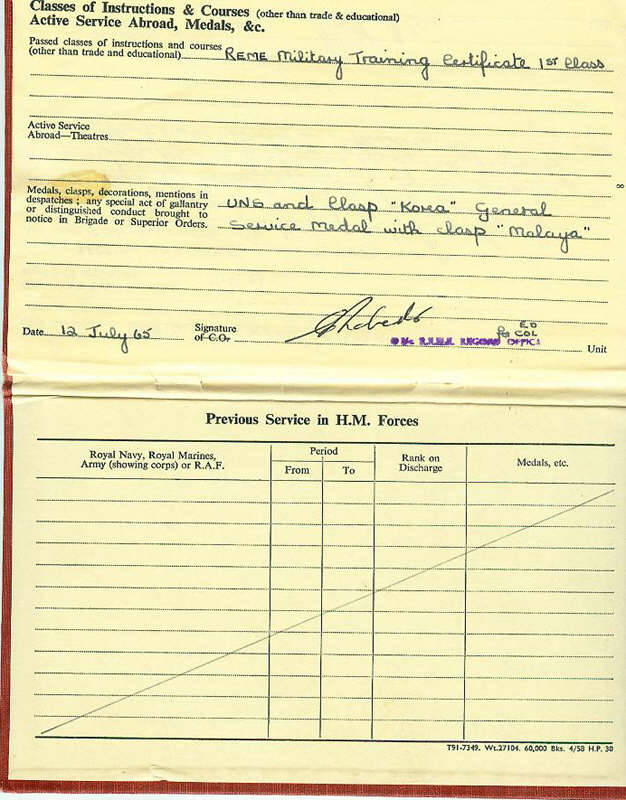 Classes of Instructions & Courses (other than trade & educational)
Active Service Abroad, Medals, &c.
Passed classes of instructions and courses
(other than trade and educational) REME Military Training Certificate 1ST Class
Active Service
Abroad—Theatres
Medals, clasps, decorations, mentions in
despatches ; any special act of gallantry
or distinguished conduct brought to
notice in Brigade or Superior Orders.
UNS and Clasp "Korea" General
Service Medal with clasp "Malaya"
Date 12 July 65 Signature
of C.O.
COL
R.E.M.E. RECORD OFFICE
Unit
Previous Service in H.M. Forces
Royal Navy, Royal Marines,
Army (showing corps) or R.A.F.
Period
From To
Rank on
Discharge
Medals, etc.
T91-7349. Wt.27104. 60,000 Bks. 4/58 H.P. 30